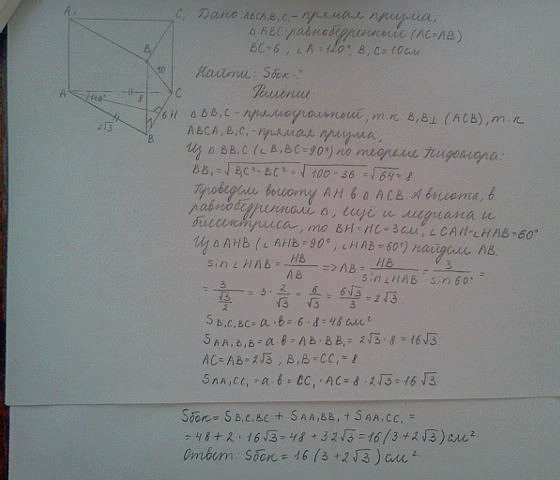 A₁
C₁
B₁
10
A
120°
8
C
6
H
2√3
B
Дано: ABCA₁B₁C₁ - прямая призма.
△ABC равнобедренный (AC=AB)
BC=6, ∠A=120°, B₁C=10см
Найти: Sбок-?
Решение
△BB₁C - прямоугольный, т.к B₁B⊥(ACB), т.к
ABCA₁B₁C₁ - прямая призма,
Из △BB₁C (∠B₁BC=90°) по теореме Пифагора:
BB₁=√B₁C²-BC²=√100-36=√64=8
Проведем высоту AH в △ACB. А высота, в
равнобедренном △, ещё и медиана и
биссектриса, то BH=HC=3см, ∠CAH=∠HAB=60°
Из △AHB (∠AHB=90°, ∠HAB=60°) найдем AB.
sin∠HAB = HB/AB => AB = HB/sin∠HAB = 3/sin60° =
= 3/(√3/2) = 3·2/√3 = 6/√3 = 6√3/3 = 2√3.
S B₁C₁BC = a·b = 6·8 = 48см²
S AA₁B₁B = a·b = AB·BB₁ = 2√3·8 = 16√3
AC=AB=2√3; B₁B=CC₁=8
S AA₁CC₁ = a·b = CC₁·AC = 8·2√3 = 16√3
Sбок = S B₁C₁BC + S AA₁BB₁ + S AA₁CC₁ =
= 48+2·16√3 = 48+32√3 = 16(3+2√3) см²
Ответ: Sбок = 16(3+2√3) см².